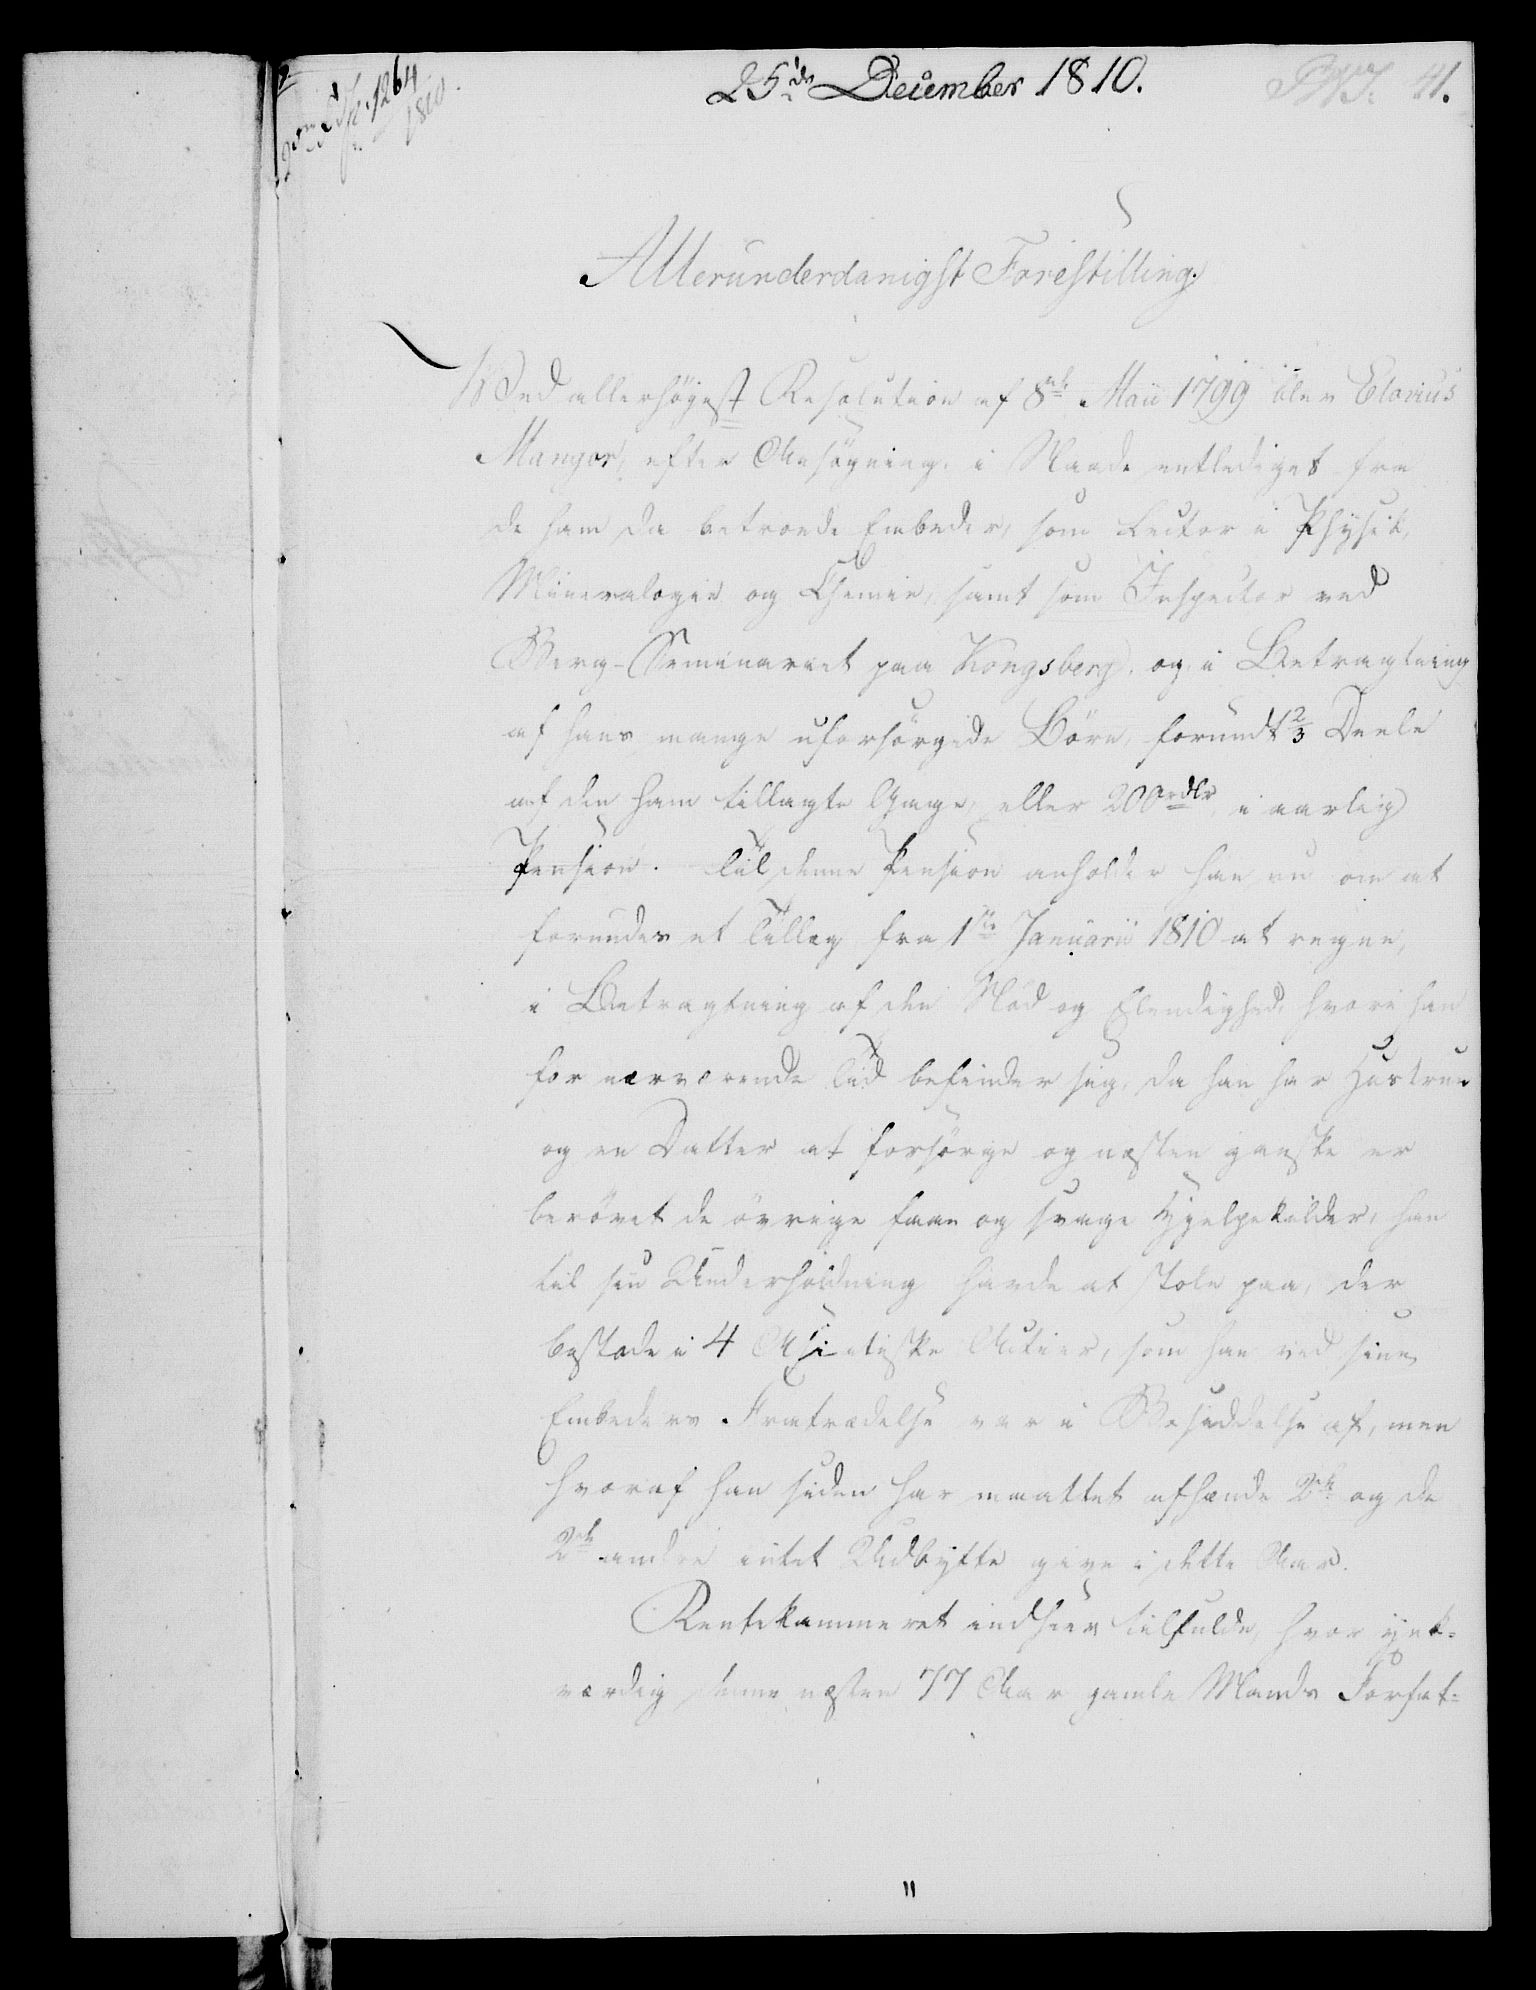 25de December 1810.
No 41.
1264
1810.
Allerunderdanigst Forestilling.
Ved allerhøyest Resolution af 8de Maii 1799 blev Elovius
Mangor, efter Ansøgning, i Naade entlediget fra
de ham da betroede Embeder, som Lector i Physik,
Mineralogie og Chemie, samt som Inspector ved
Berg-Seminariet paa Kongsberg, og, i Betragtning
af hans mange uforsørgede Börn, forundt 2/3 Deele
af den ham tillagte Gage, eller 200 rdlr, i aarlig
Pension. Til denne Pension anholder han nu om at
forundes et Tillæg fra 1ste Januarii 1810 at regne,
i Betragtning af den Nød og Elendighed, hvori han
for nærværende Tid befinder sig, da han har Hustrue
og en Datter at forsörge og næsten ganske er
berövet de övrige faae og svage Hjelpekilder, han
til sin Underholdning havde at stole paa, der
bestode i 4 Asiatiske Actier, som han ved sine
Embeders Fratrædelse var i Besiddelse af, men
hvoraf han siden har maattet afhænde 2de og de
2de andre intet Udbytte give i dette Aar.
Rentekammeret indseer tilfulde, hvor ynk-
værdig denne næsten 77 Aar gamle Mands Forfat-